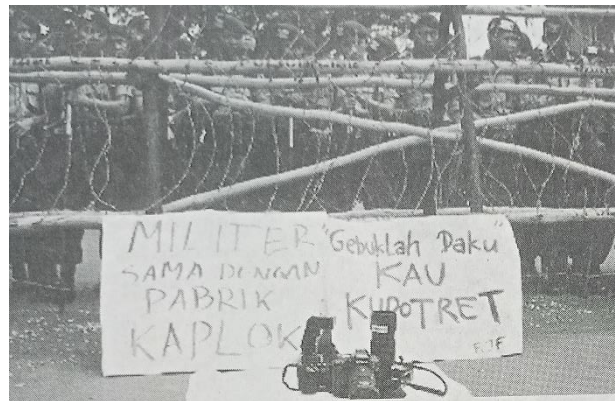 MILITER
SAMA DENGAN
PABRIK
KAPLOK
"Gebuklah Daku"
KAU
KUPOTRET